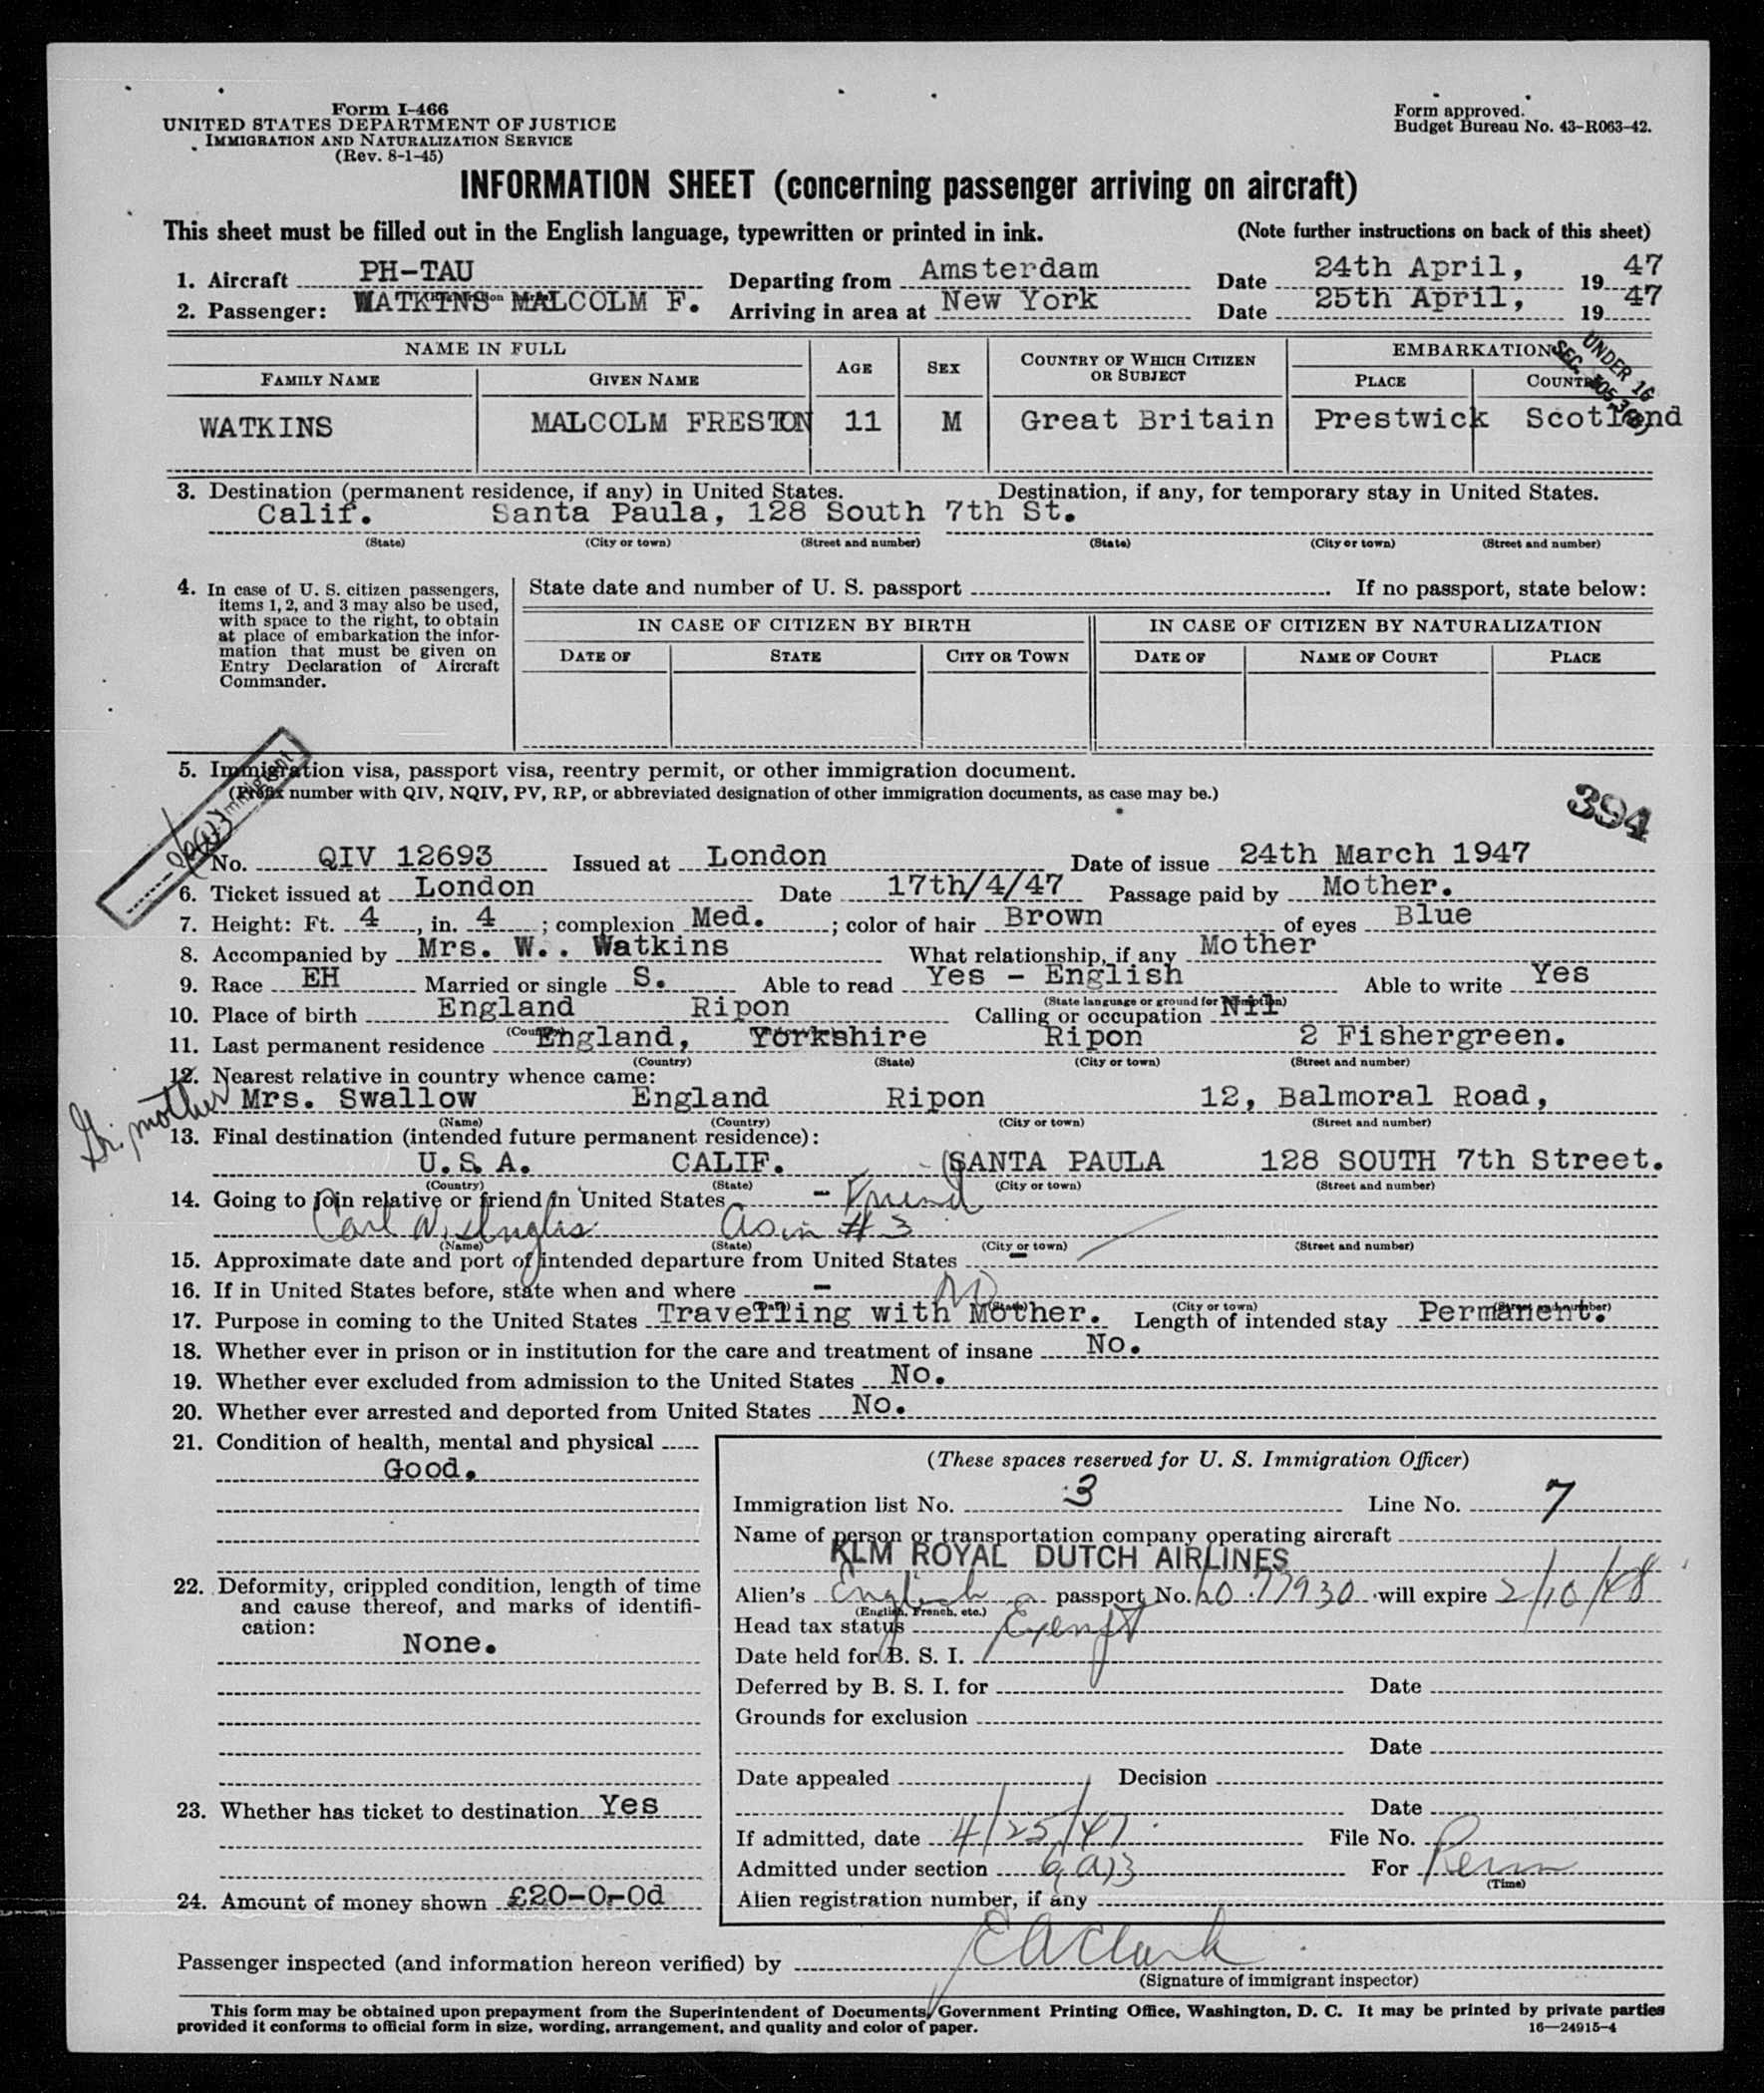 Form I-466
UNITED STATES DEPARTMENT OF JUSTICE
IMMIGRATION AND NATURALIZATION SERVICE
(Rev. 8-1-45)
Form approved.
Budget Bureau No. 43-R063-42.
INFORMATION SHEET (concerning passenger arriving on aircraft)
This sheet must be filled out in the English language, typewritten or printed in ink. (Note further instructions on back of this sheet)
1. Aircraft PH-TAU Departing from Amsterdam Date 24th April, 1947
2. Passenger: WATKINS MALCOLM F. Arriving in area at New York Date 25th April, 1947
NAME IN FULL AGE SEX COUNTRY OF WHICH CITIZEN OR SUBJECT EMBARKATION
FAMILY NAME GIVEN NAME PLACE COUNTRY
UNDER 16
SEC.
WATKINS MALCOLM FRESTON 11 M Great Britain Prestwick Scotland
3. Destination (permanent residence, if any) in United States. Destination, if any, for temporary stay in United States.
Calif. Santa Paula, 128 South 7th St.
(State) (City or town) (Street and number) (State) (City or town) (Street and number)
4. In case of U. S. citizen passengers, items 1, 2, and 3 may also be used, with space to the right, to obtain at place of embarkation the information that must be given on Entry Declaration of Aircraft Commander.
State date and number of U. S. passport If no passport, state below:
IN CASE OF CITIZEN BY BIRTH IN CASE OF CITIZEN BY NATURALIZATION
DATE OF STATE CITY OR TOWN DATE OF NAME OF COURT PLACE
5. Immigration visa, passport visa, reentry permit, or other immigration document.
(Prefix number with QIV, NQIV, PV, RP, or abbreviated designation of other immigration documents, as case may be.)
394
Immigrant
No. QIV 12693 Issued at London Date of issue 24th March 1947
6. Ticket issued at London Date 17th/4/47 Passage paid by Mother.
7. Height: Ft. 4, in. 4; complexion Med.; color of hair Brown of eyes Blue
8. Accompanied by Mrs. W. . Watkins What relationship, if any Mother
9. Race EH Married or single S. Able to read Yes - English Able to write Yes
(State language or ground for exemption)
10. Place of birth England Ripon Calling or occupation Nil
(Country)
11. Last permanent residence England, Yorkshire Ripon 2 Fishergreen.
(Country) (State) (City or town) (Street and number)
12. Nearest relative in country whence came:
Gr. mother Mrs. Swallow England Ripon 12, Balmoral Road,
(Name) (Country) (City or town) (Street and number)
13. Final destination (intended future permanent residence):
U.S.A. CALIF. SANTA PAULA 128 SOUTH 7th Street.
(Country) (State) (City or town) (Street and number)
14. Going to join relative or friend in United States - Friend
Carl N. Inglis As in # 3
(Name) (State) (City or town) (Street and number)
15. Approximate date and port of intended departure from United States -
16. If in United States before, state when and where - No
(State) (City or town) (Street and number)
17. Purpose in coming to the United States Travelling with Mother. Length of intended stay Permanent.
18. Whether ever in prison or in institution for the care and treatment of insane No.
19. Whether ever excluded from admission to the United States No.
20. Whether ever arrested and deported from United States No.
21. Condition of health, mental and physical
Good.
22. Deformity, crippled condition, length of time and cause thereof, and marks of identification:
None.
23. Whether has ticket to destination Yes
24. Amount of money shown £20-0-0d
(These spaces reserved for U. S. Immigration Officer)
Immigration list No. 3 Line No. 7
Name of person or transportation company operating aircraft
KLM ROYAL DUTCH AIRLINES
Alien's English passport No. 77930 will expire 2/10/48
(English, French, etc.)
Head tax status Exempt
Date held for B. S. I.
Deferred by B. S. I. for Date
Grounds for exclusion
Date
Date appealed Decision
Date
If admitted, date 4/25/47 File No.
Admitted under section 6(a)3 For Perm
(Time)
Alien registration number, if any
Passenger inspected (and information hereon verified) by E A Clark
(Signature of immigrant inspector)
This form may be obtained upon prepayment from the Superintendent of Documents, Government Printing Office, Washington, D. C. It may be printed by private parties
provided it conforms to official form in size, wording, arrangement, and quality and color of paper. 16—24915-4